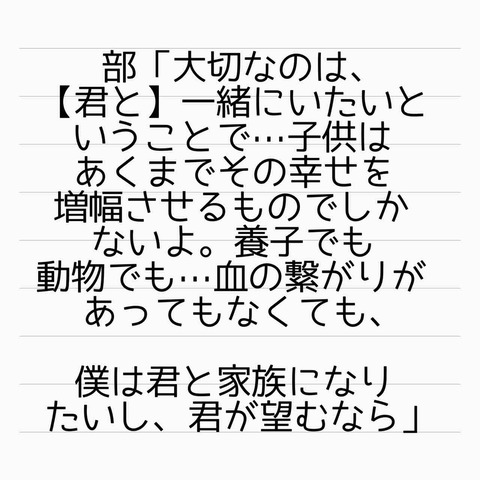 部「大切なのは、
【君と】一緒にいたいと
いうことで…子供は
あくまでその幸せを
増幅させるものでしか
ないよ。養子でも
動物でも…血の繋がりが
あってもなくても、
僕は君と家族になり
たいし、君が望むなら」